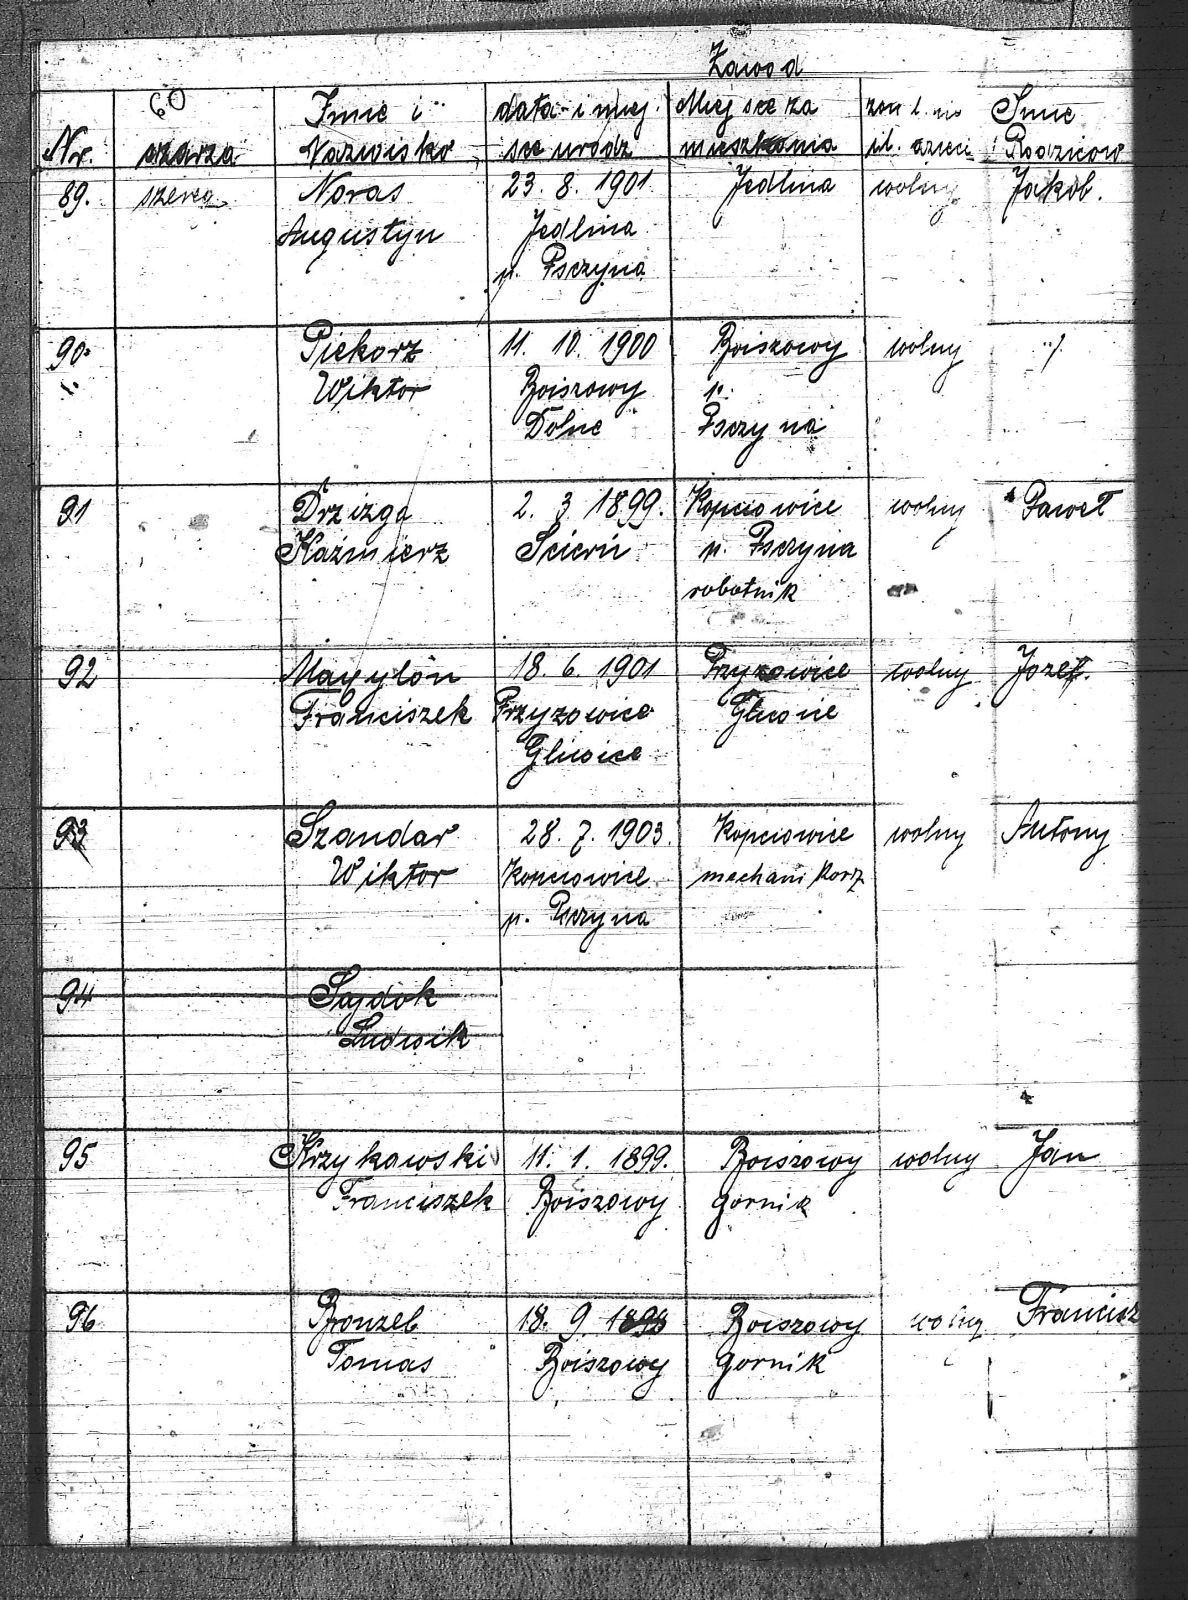 Zawod
60
Imie i data i miej Miejsce za zon l. no Imie
Nr. szarza Nazwisko sce urodz mieszkania il. dzieci Rodzicow
89. szereg. Noras 23. 8. 1901 Jedlina wolny Jakob.
Augustyn Jedlina
p. Psczyna
90. Piekorz 11. 10. 1900 Boiszowy wolny
Wiktor Boiszowy p.
Dolne Psczyna
91 Drzizga 2. 3. 1899. Kopciowice wolny Paweł
Kaźmierz Scierń p. Psczyna
robotnik
92 18. 6. 1901 Przyzowice wolny Jozef.
Franciszek Przyzowice Gliwice
Gliwice
93 Szandar 28. 7. 1903. Kopciowice wolny Antony
Wiktor Kopciowice
p. Psczyna
94 Sajdok
Ludwik
95 Krzykawski 11. 1. 1899. Boiszowy wolny Jan
Franciszek Boiszowy gornik
96 Bronzel 18. 9. 1898 Boiszowy wolny Francisz
Tomas Boiszowy gornik